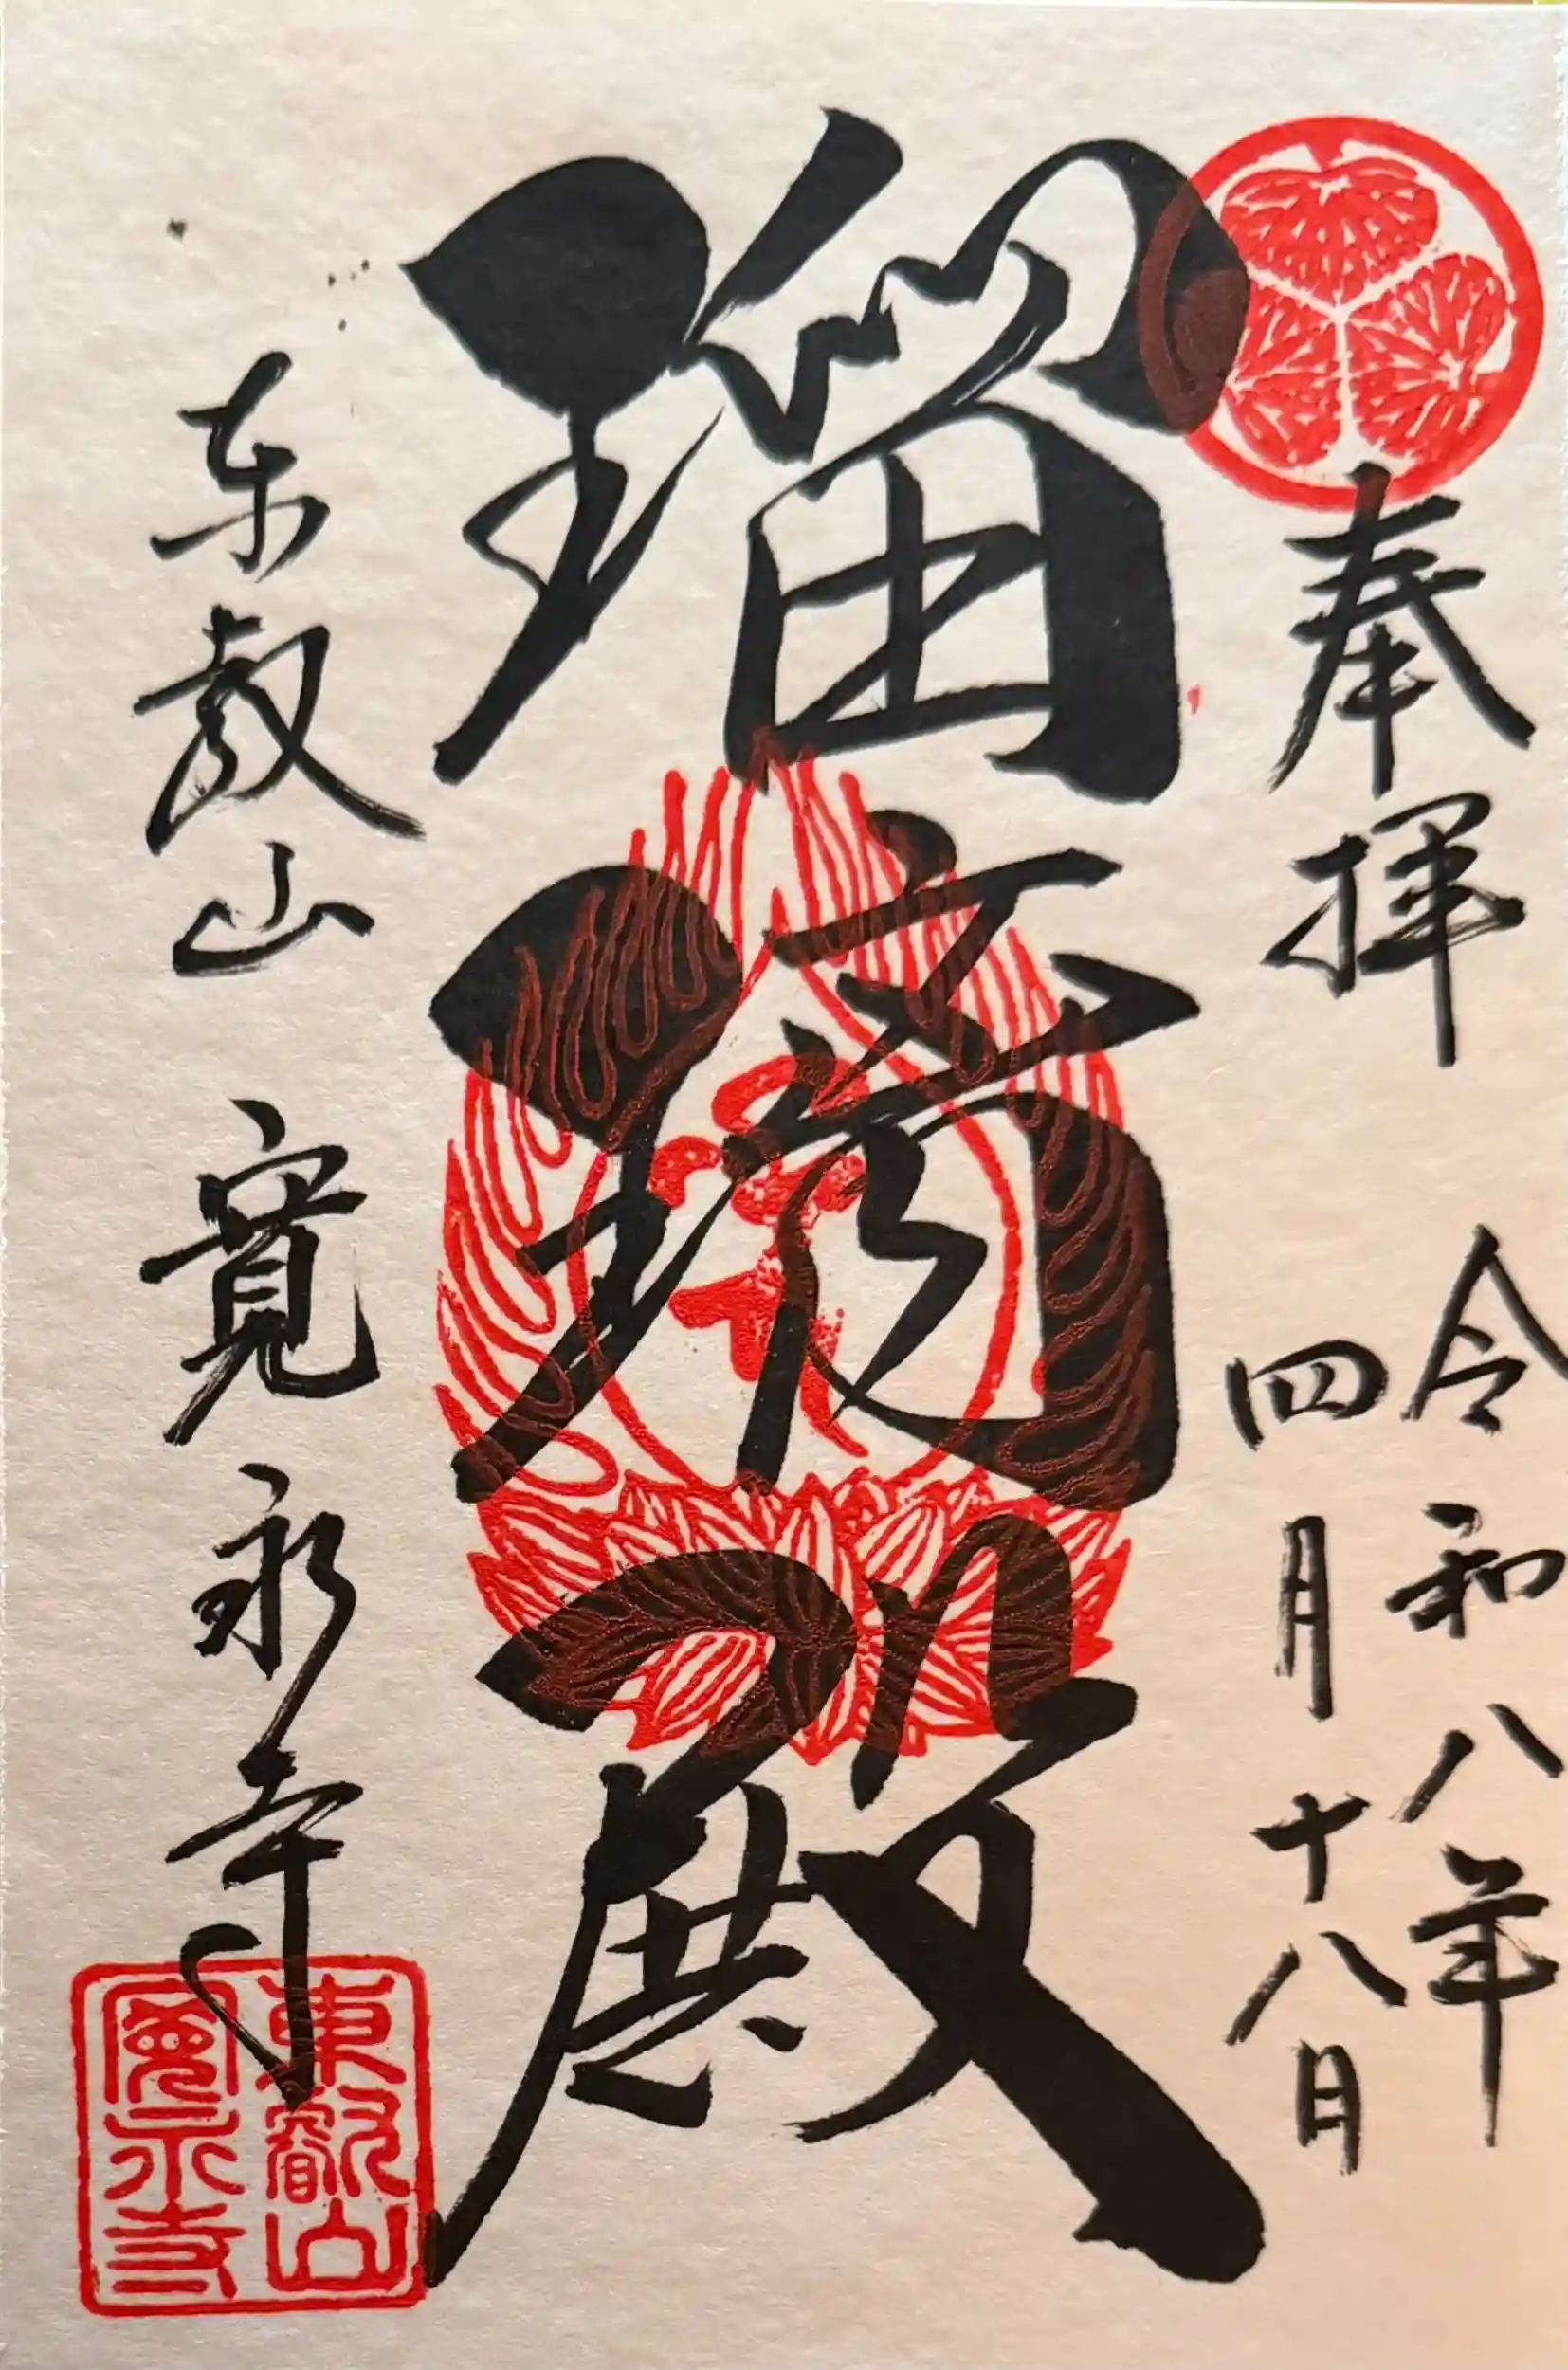 奉拝
令和八年
四月十八日
瑠璃殿
東叡山 寛永寺
東叡山
寛永寺